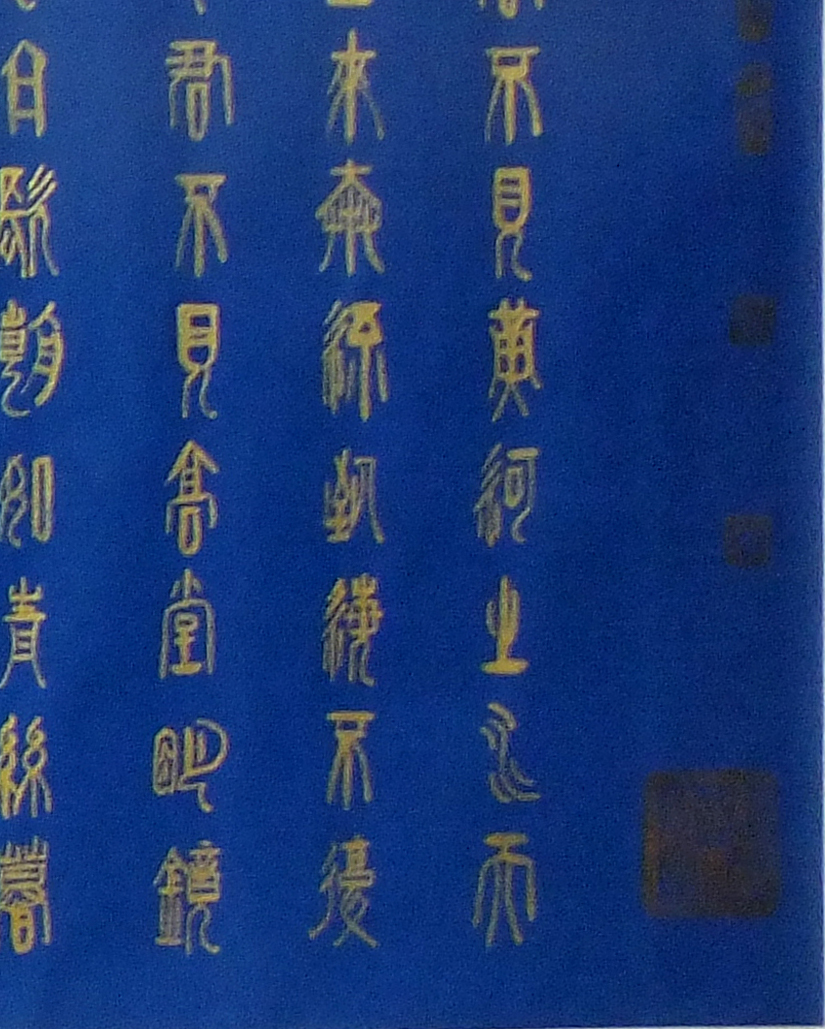 不見黃河之水天
來奔流到海不復
君不見高堂明鏡
白髮朝如青絲暮